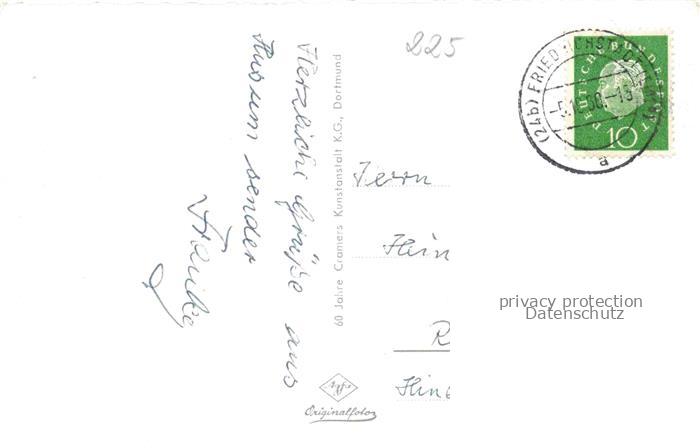 225
Herzliche Grüße aus
Husum sendet
Frauke
60 Jahre Cramers Kunstanstalt K.G., Dortmund
Agfa
Originalfoto
Herrn
Hein
R
Hin
(24b) FRIEDRICHSTADT
a
DEUTSCHE BUNDESPOST
10
privacy protection
Datenschutz